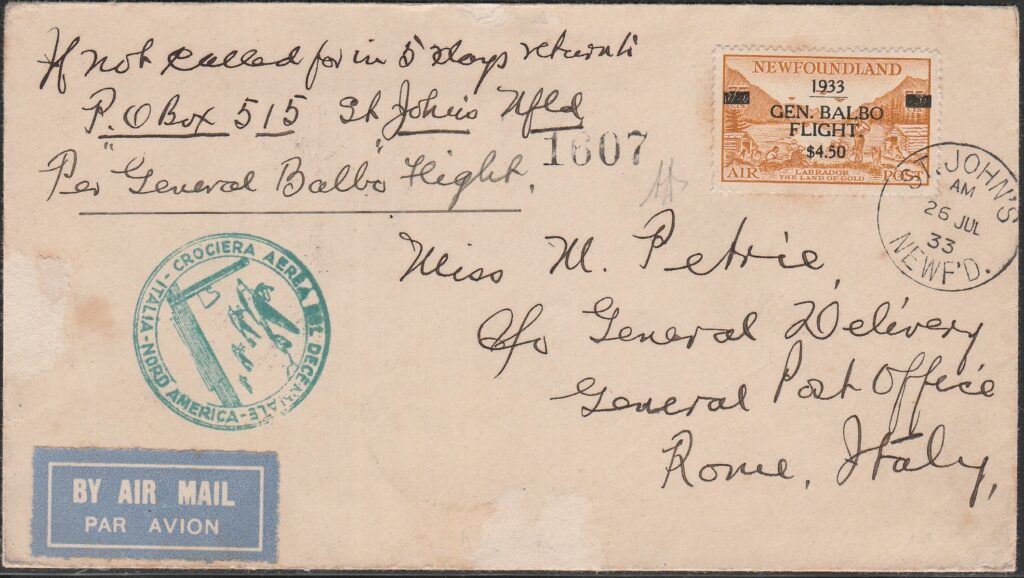 If not called for in 5 days return to
P.O Box 515 St John's Nfld
Per "General Balbo" Flight.
1607
NEWFOUNDLAND
1933
GEN. BALBO
FLIGHT.
$4.50
AIR LABRADOR POST
THE LAND OF GOLD
ST. JOHN'S
AM
26 JUL
33
NEWF'D.
CROCIERA AEREA DEL DECENNALE - ITALIA - NORD AMERICA -
Miss M. Petrie,
c/o General Delivery
General Post Office
Rome, Italy,
BY AIR MAIL
PAR AVION